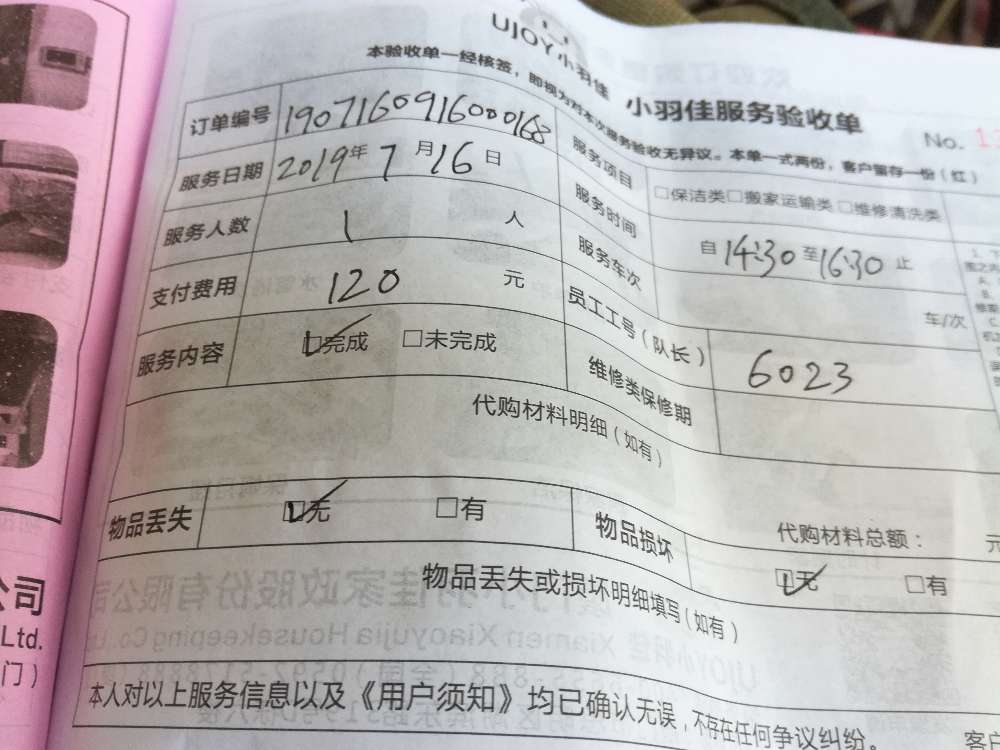 UJOY小羽佳 小羽佳服务验收单
本验收单一经核签，即视为对本次服务验收无异议。本单一式两份，客户留存一份（红）
No.
订单编号 1907160916000168 服务项目 □保洁类□搬家运输类□维修清洗类
服务日期 2019年7月16日 服务时间 自14:30至16:30止
服务人数 1 人 服务车次 车/次
支付费用 120 元 员工工号（队长） 6023
服务内容 ☑完成 □未完成 维修类保修期
代购材料明细（如有）
代购材料总额： 元
物品丢失 ☑无 □有 物品损坏 ☑无 □有
物品丢失或损坏明细填写（如有）
本人对以上服务信息以及《用户须知》均已确认无误，不存在任何争议纠纷。
客户
公司
Ltd.
门）